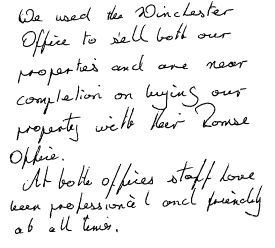 We used the Winchester
Office to sell both our
properties and are near
completion on buying our
property with their Romse
Office.
At both offices staff have
been professional and friendly
at all times.